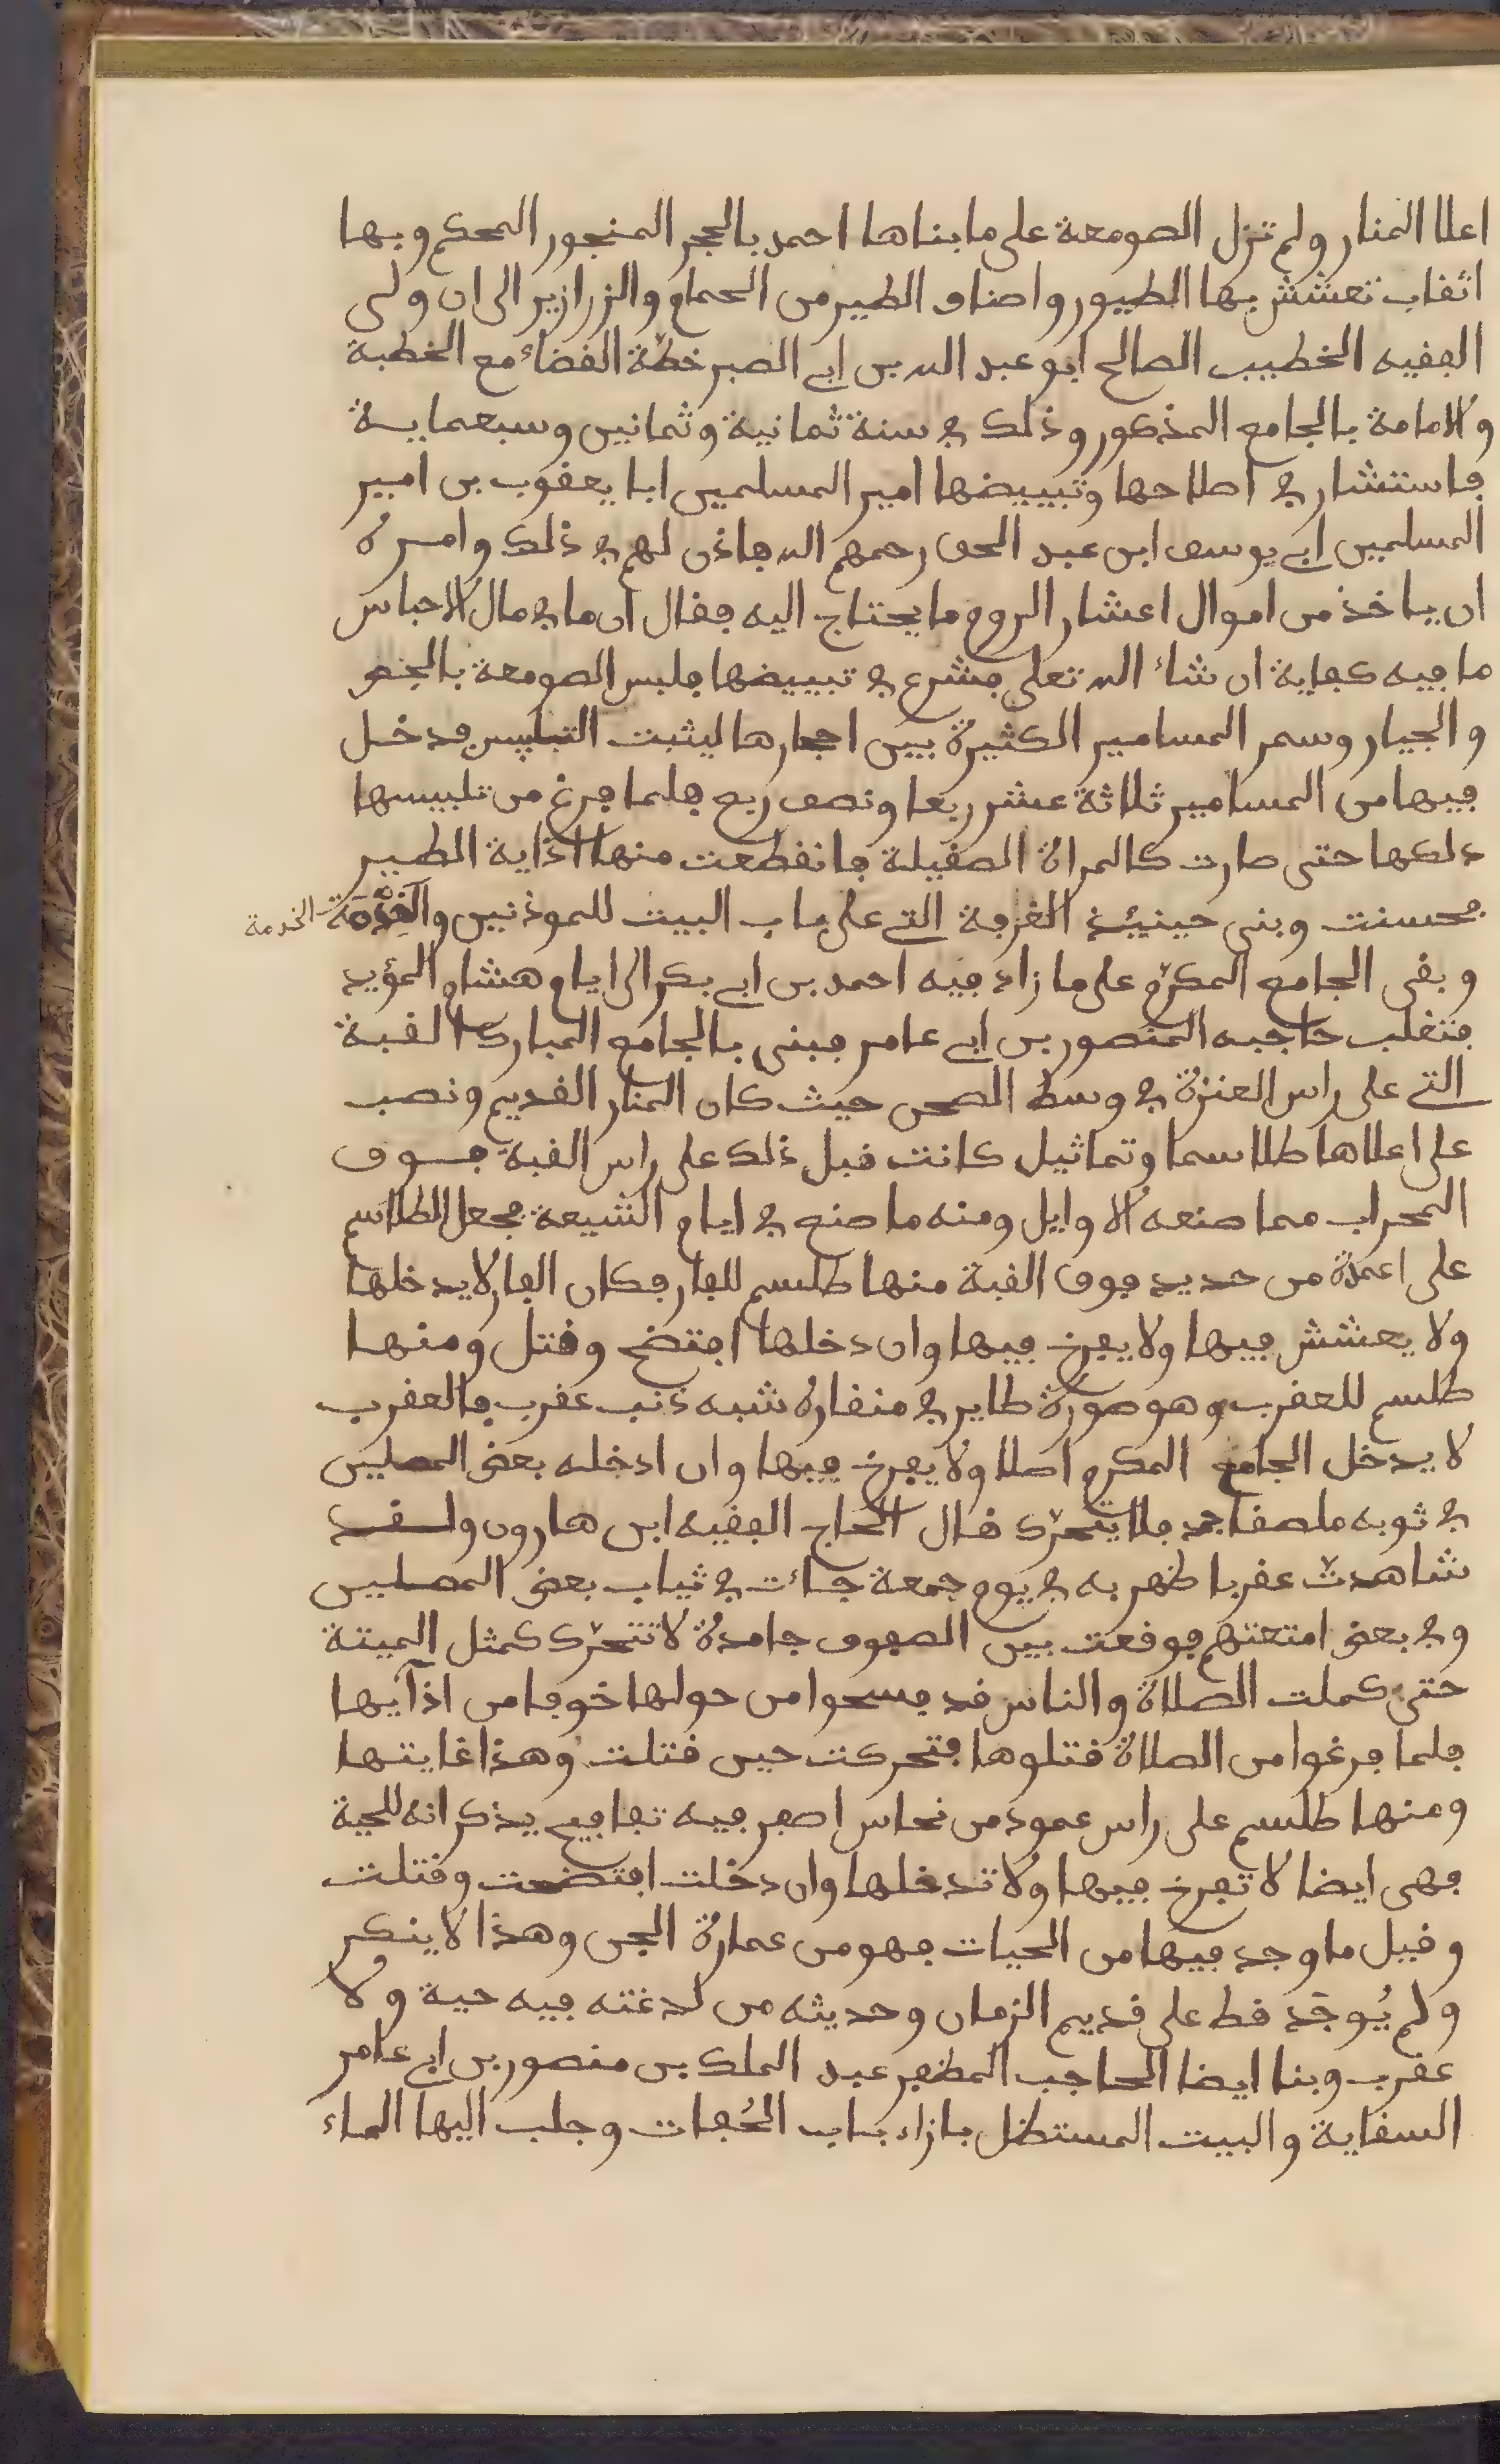 اعلا المنار ولم تزل الصومعة على ما بناها احمد بالحجر المنجور المحكم وبها
اثقاب تعشش بها الطيور واصناف الطير من الحمام والزرازير الى ان ولى
الفقيه الخطيب الصالح ابو عبد الله بن ابي الصبر خطة القضاء مع الخطبة
والامامة بالجامع المذكور وذلك في سنة ثمانية وثمانين وسبعماية
فاستشار في اصلاحها وتبييضها امير المسلمين ابا يعقوب بن امير
المسلمين ابي يوسف ابن عبد الحق رحمهم الله فاذن لهم في ذلك وامره
ان ياخذ من اموال اعشار الروم ما يحتاج اليه فقال ان ما في مال الاحباس
ما فيه كفاية ان شاء الله تعلى فشرع في تبييضها فلبس الصومعة بالجص
والجيار وسمر المسامير الكثيرة بين احجارها ليثبت التلبيس فدخل
فيها من المسامير ثلاثة عشر ربعا ونصف ربع فلما فرغ من تلبيسها
دلكها حتى صارت كالمراة الصقيلة فانقطعت منها اذاية الطير
فحسنت وبنى حينئذ الغرفة التي على باب البيت للموذنين والخدمة الخدمة
وبقى الجامع المكرم على ما زاد فيه احمد بن ابي بكر الى ايام هشام المؤيد
فتغلب حاجبه المنصور بن ابي عامر فبنى بالجامع المبارك القبة
التي على راس العنزة في وسط الصحن حيث كان المنار القديم ونصب
على اعلاها طلاسما وتماثيل كانت قبل ذلك على راس القبة فوق
المحراب مما صنعه الاوايل ومنه ما صنع في ايام الشيعة فجعل الطلاسم
على اعمدة من حديد فوق القبة منها طلسم للفار فكان الفار لا يدخلها
ولا يعشش فيها ولا يفرخ فيها وان دخلها افتضح وقتل ومنها
طلسم للعقرب وهو صورة طاير في منقاره شبه ذنب عقرب فالعقرب
لا يدخل الجامع المكرم اصلا ولا يفرخ فيها وان ادخله بعض المصلين
في ثوبه ملصقا جمد فلا يتحرك قال الحاج الفقيه ابن هارون ولقد
شاهدت عقربا ظهر به في يوم جمعة جاءت في ثياب بعض المصلين
وفي بعض امتعتهم فوقعت بين الصفوف جامدة لا تتحرك كمثل الميتة
حتى كملت الصلاة والناس قد فسحوا من حولها خوفا من اذآيها
فلما فرغوا من الصلاة قتلوها فتحركت حين قتلت وهذا غايتها
ومنها طلسم على راس عمود من نحاس اصفر فيه تفافيح يذكر انه للحية
فهى ايضا لا تفرخ فيها ولا تدخلها وان دخلت افتضحت وقتلت
وقيل ما وجد فيها من الحيات فهو من عمارة الجن وهذا لا ينكر
ولم يُوجَد قط على قديم الزمان وحديثه من لدغته فيه حية ولا
عقرب وبنا ايضا الحاجب المظفر عبد الملك بن منصور بن ابي عامر
السقاية والبيت المستظل بازاء باب الحُفات وجلب اليها الماء